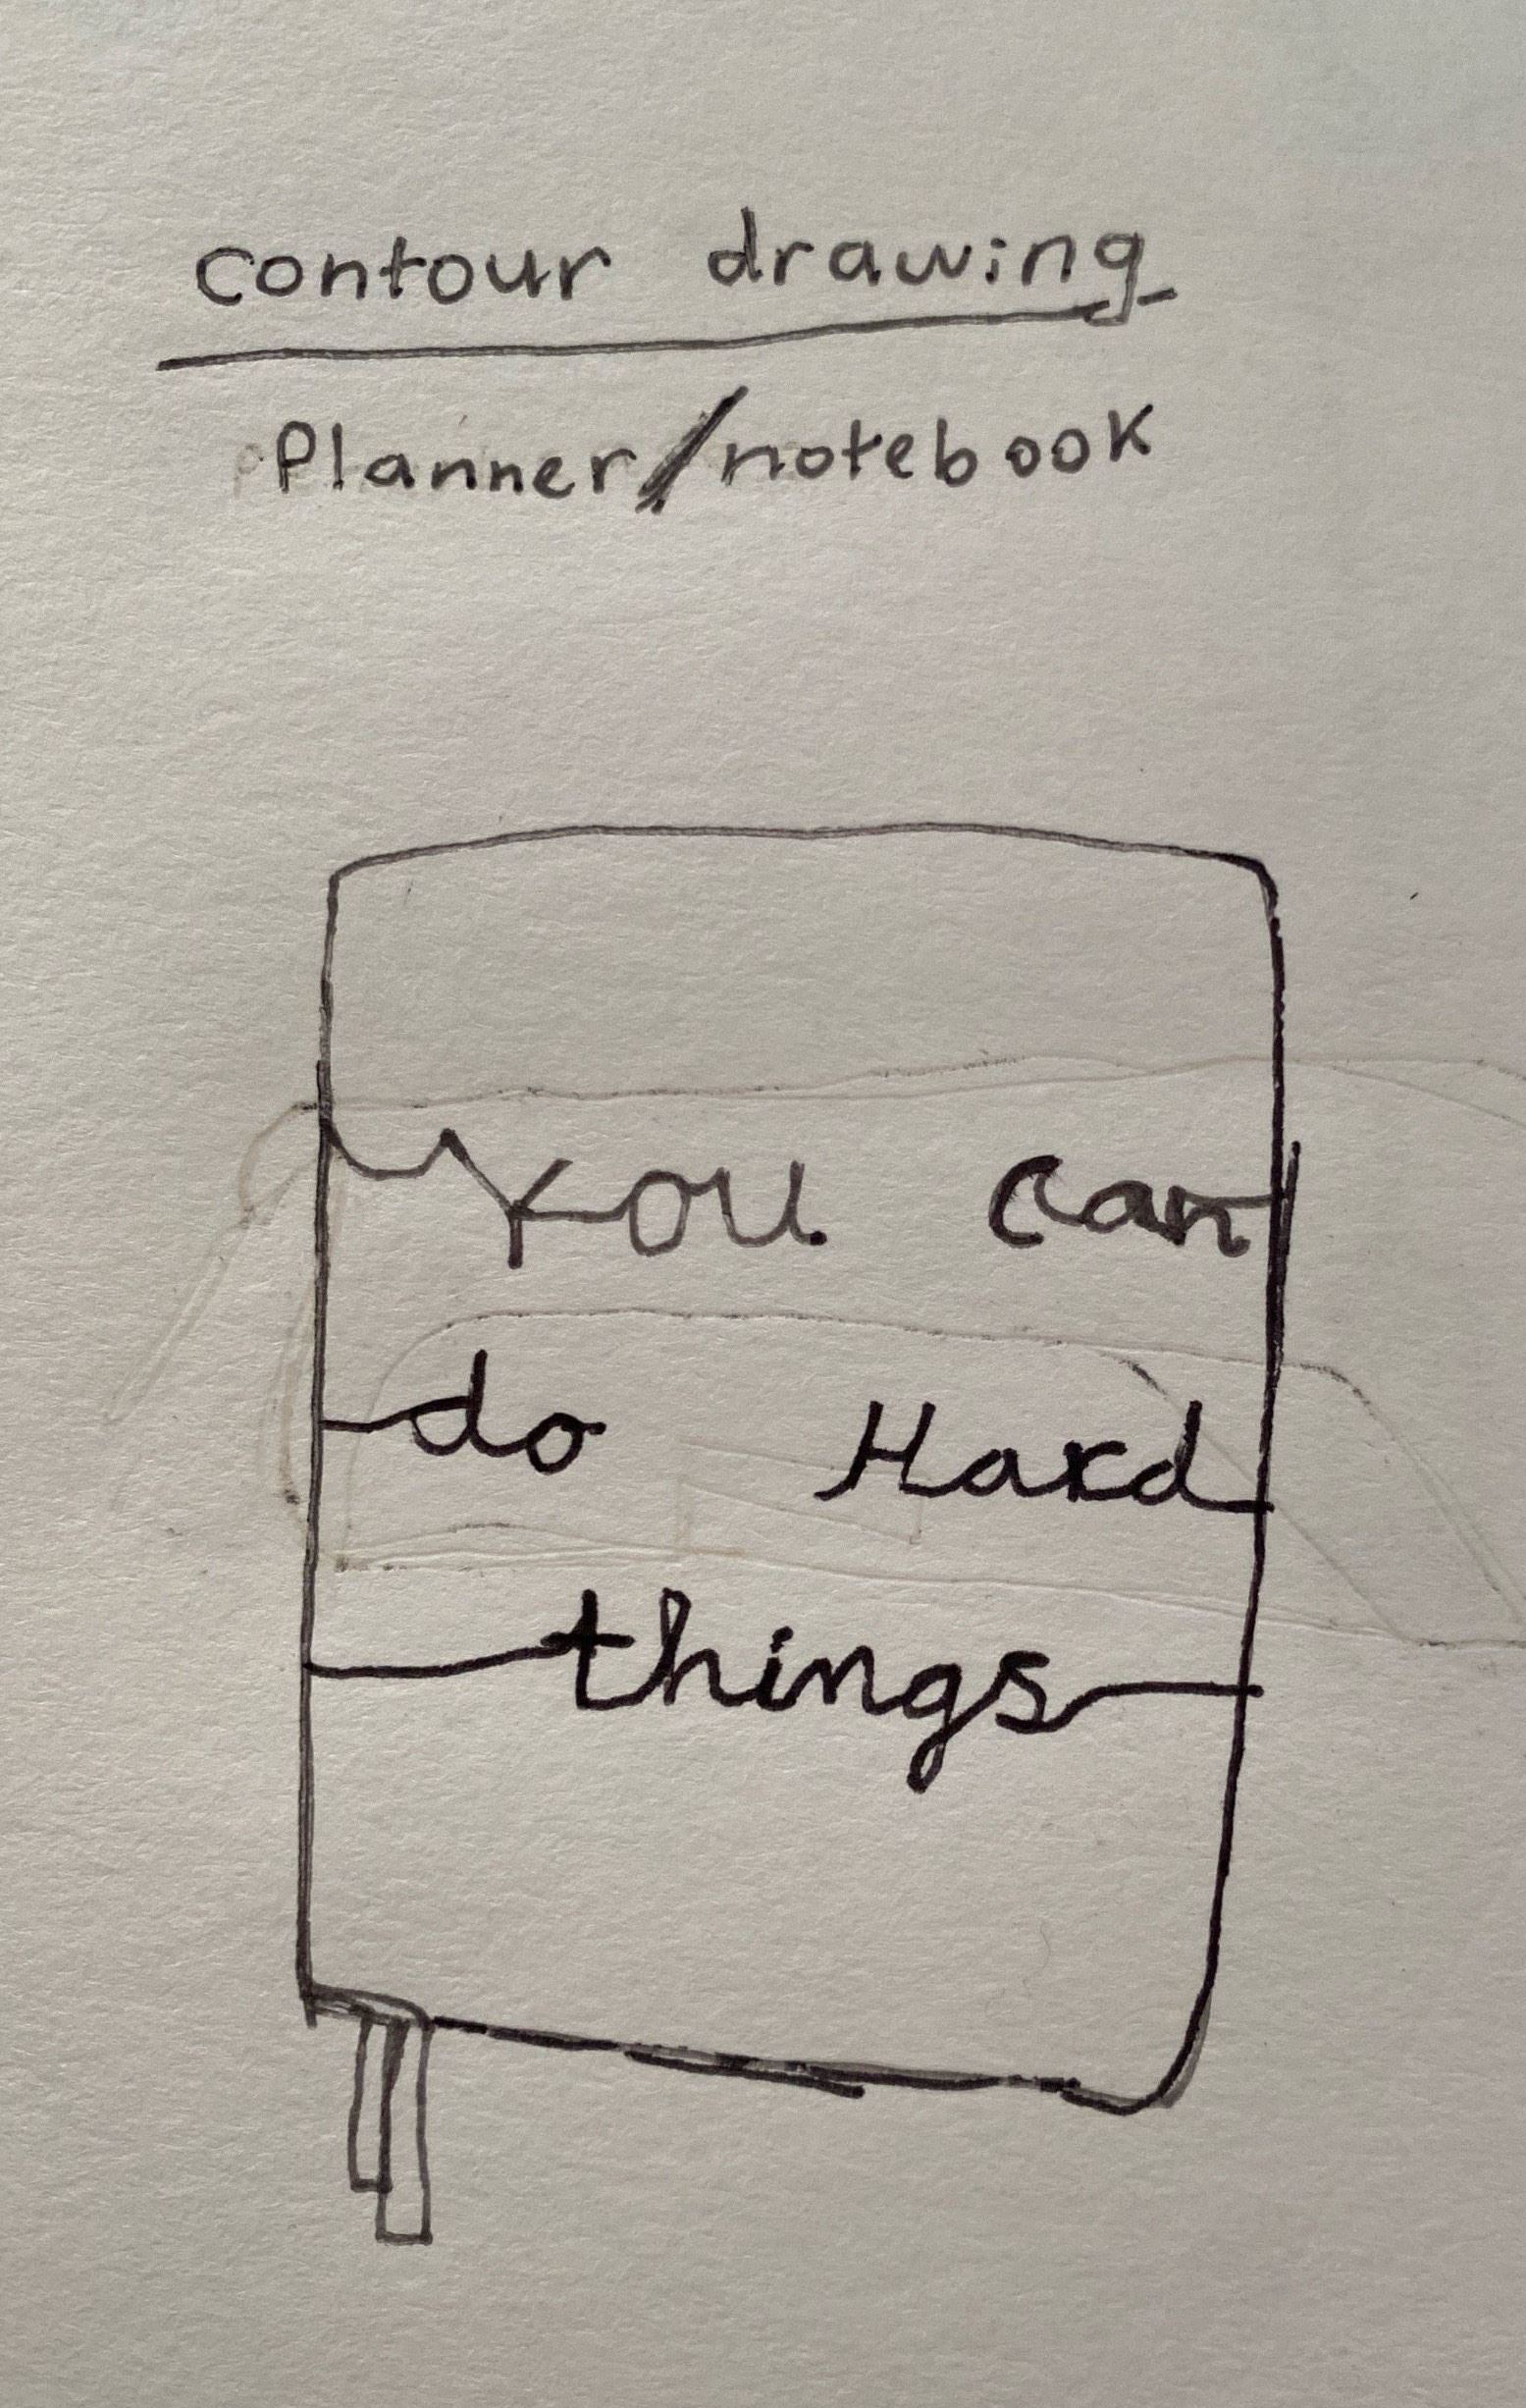 contour drawing
Planner/notebook
You can
do Hard
things